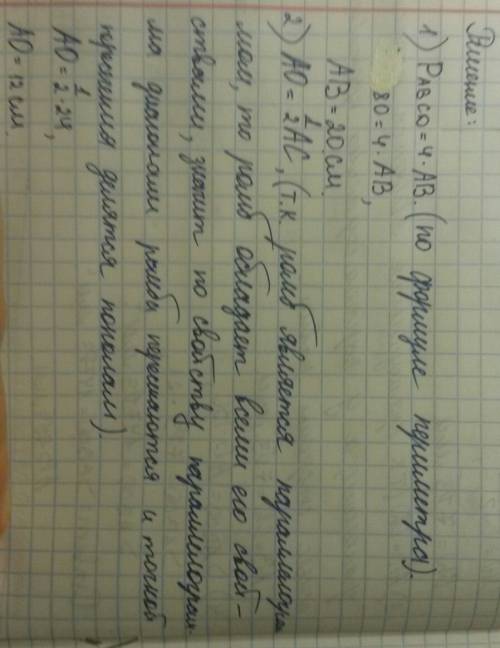 Решение:
1) PABCD = 4·AB. (по формуле периметра).
80 = 4·AB,
AB = 20 см.
2) AO = 1/2 AC, (т.к ромб является параллелограм-
мом, то ромб обладает всеми его свой-
ствами, значит по свойству параллелограм-
ма диагонали ромба пересекаются и точкой
пересечения делятся пополам).
AO = 1/2·24,
AO = 12 см.